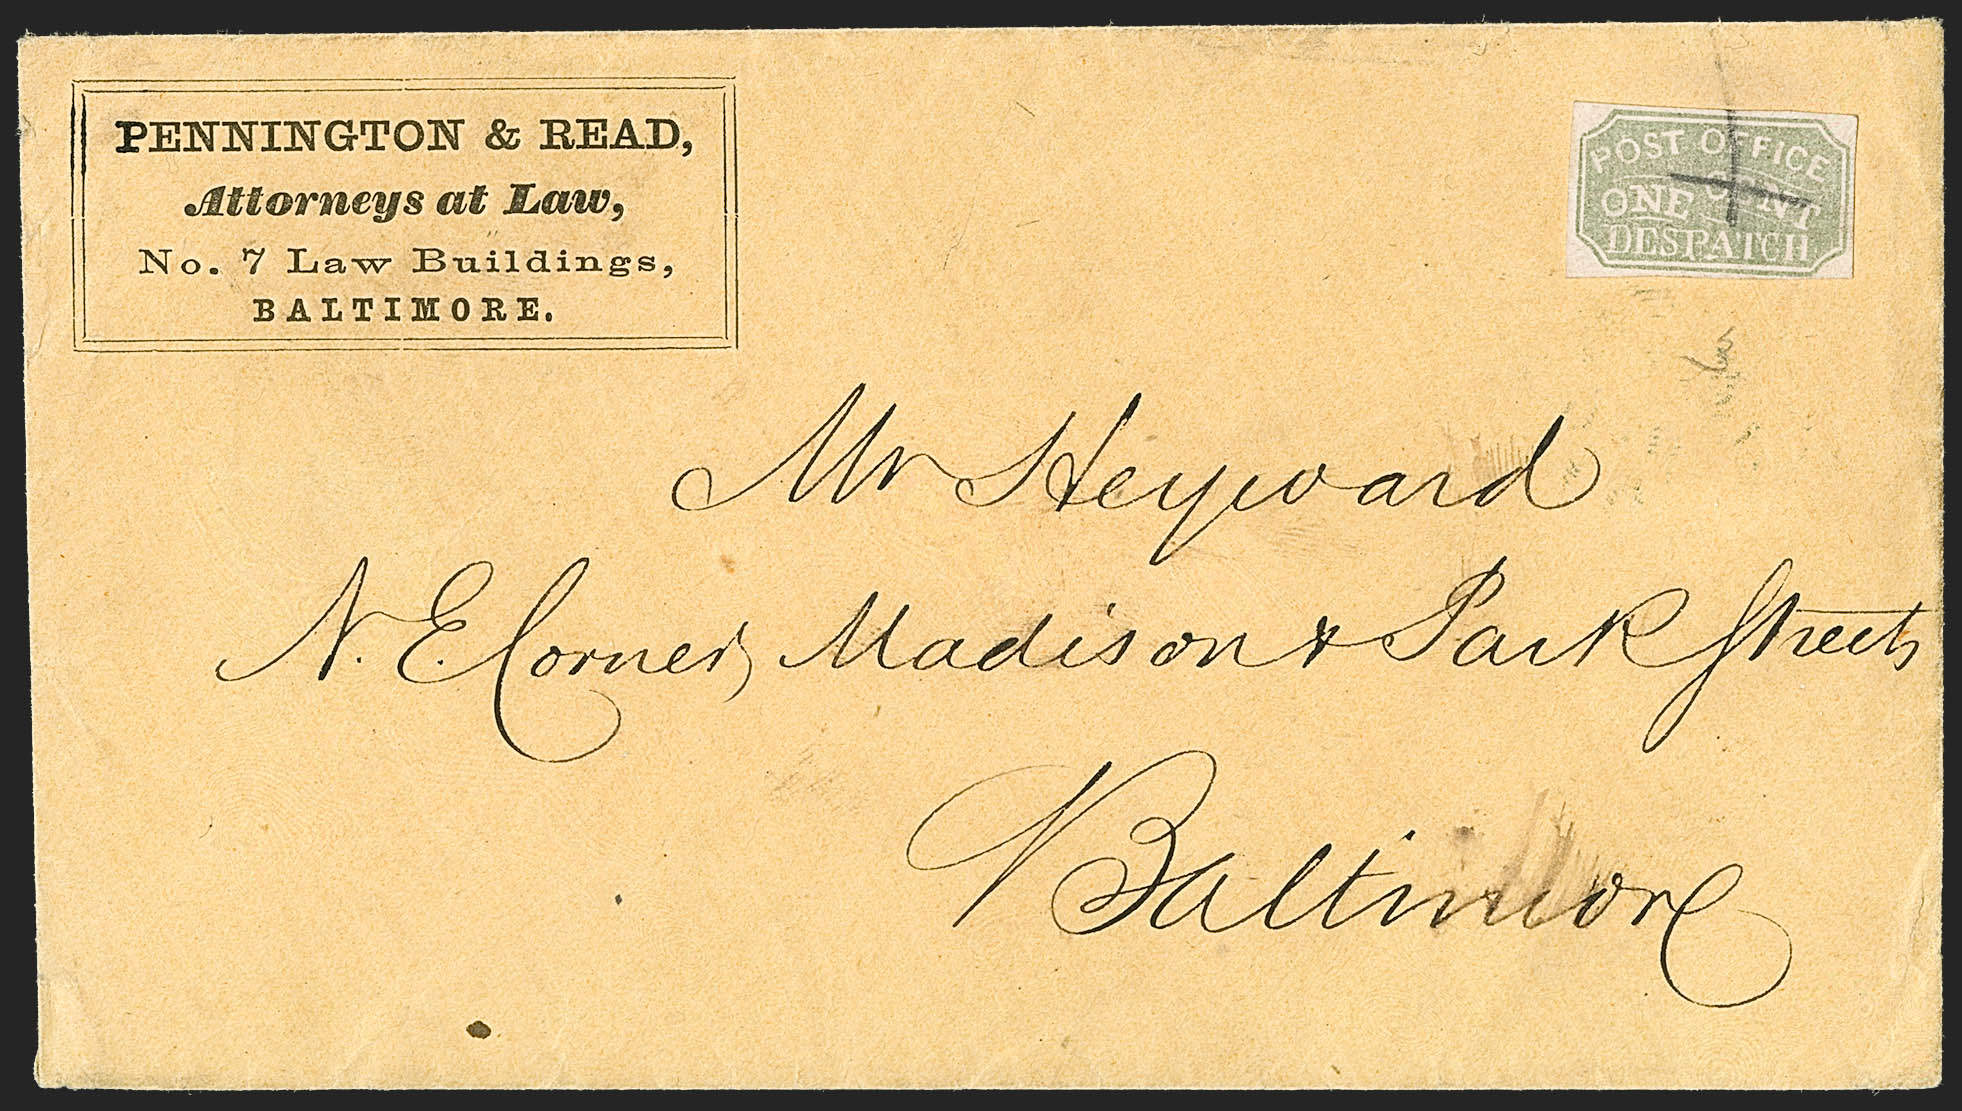 PENNINGTON & READ,
Attorneys at Law,
No. 7 Law Buildings,
BALTIMORE.
POST OFFICE
ONE CENT
DESPATCH
Mr Heyward
N. E. Corner, Madison & Park Streets
Baltimore